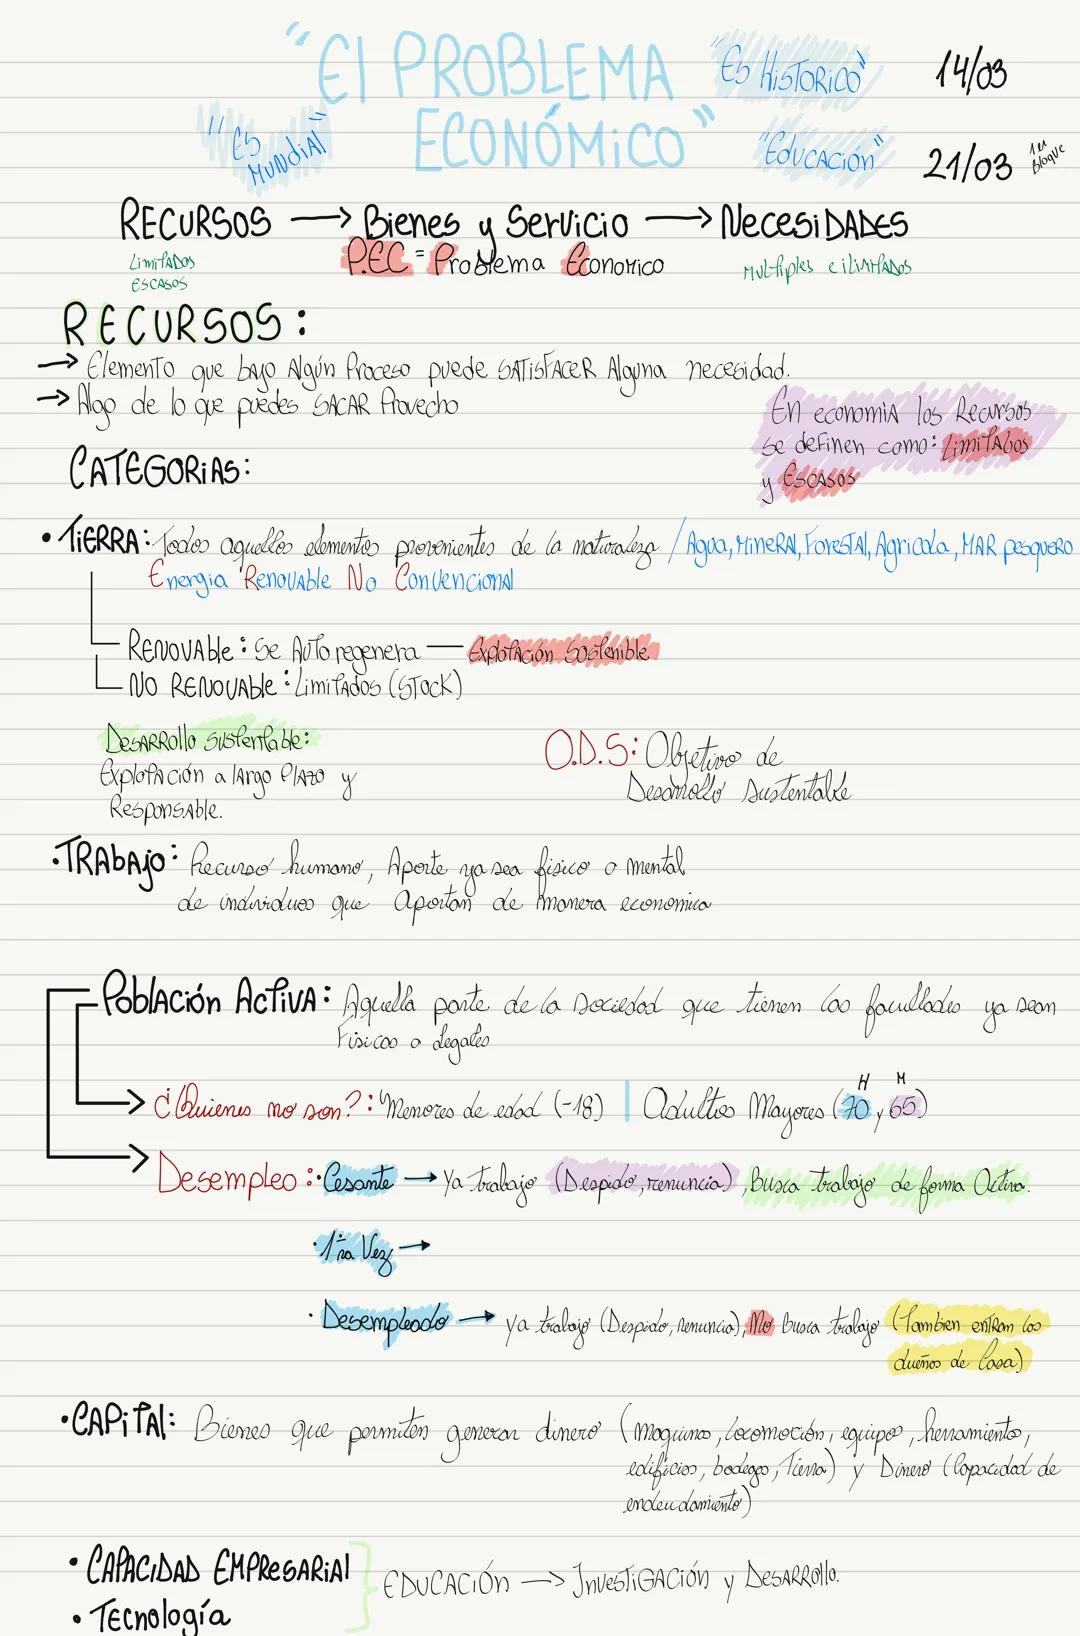 "El PROBLEMA
ECONÓMiCO"
"Es HiSTORiCO"
14/03
"Es
MUNDiAl"
"EdUCACIÓN"
21/03 1er
Bloque
RECURSOS → Bienes y Servicio → NECESiDADES
LimiTADOS
ESCASOS
P.E.C = Problema Economico
Multiples e ilimitADOS
RECURSOS:
→ Elemento que bajo Algún Proceso puede SATiSFACER Alguna necesidad.
→ Algo de lo que puedes SACAR Provecho
En economiA los Recursos
se definen como: LimiTAdos
y Escasos
CATEGORiAS:
• TiERRA: Todos aquellos elementos provenientes de la naturaleza / Agua, MineRAl, ForesTAl, Agricola, MAR pesquero
Energia Renovable No Convencional
RENOVAble: Se AUTo regenera — ExploTAción Sostenible
NO RENOVAble: LimiTAdos (STOCK)
DesARRollo SUSTentable:
ExploTAción a lArgo PlAzo y
ResponsAble.
O.D.S: Objetivo de
Desarrollo Sustentable
• TRAbAjo: Recurso humano, Aporte ya sea fisico o mental
de individuos que Aportan de manera economica
PoblAción AcTiVA: Aquella parte de la sociedad que tienen las facultades ya sean
Fisicas o Legales
→ ¿Quienes no son?: Menores de edad (-18) | Adultos Mayores (70 y 65)
H M
→ Desempleo: • Cesante → Ya trabajo (Despido, renuncia), Busca trabajo de forma Activa.
• 1ra Vez →
• Desempleado → ya trabajo (Despido, renuncia), No busca trabajo (Tambien entRan las
dueñas de Casa)
• CAPiTAl: Bienes que permiten generar dinero (maquinas, locomoción, equipos, herramientas,
edificios, bodegas, Tierra) y Dinero (Capacidad de
endeudamiento)
• CAPACiDAD EMPResARiAl
• TECnología
EDUCACIÓN → InvesTiGAción y DesARRollo.